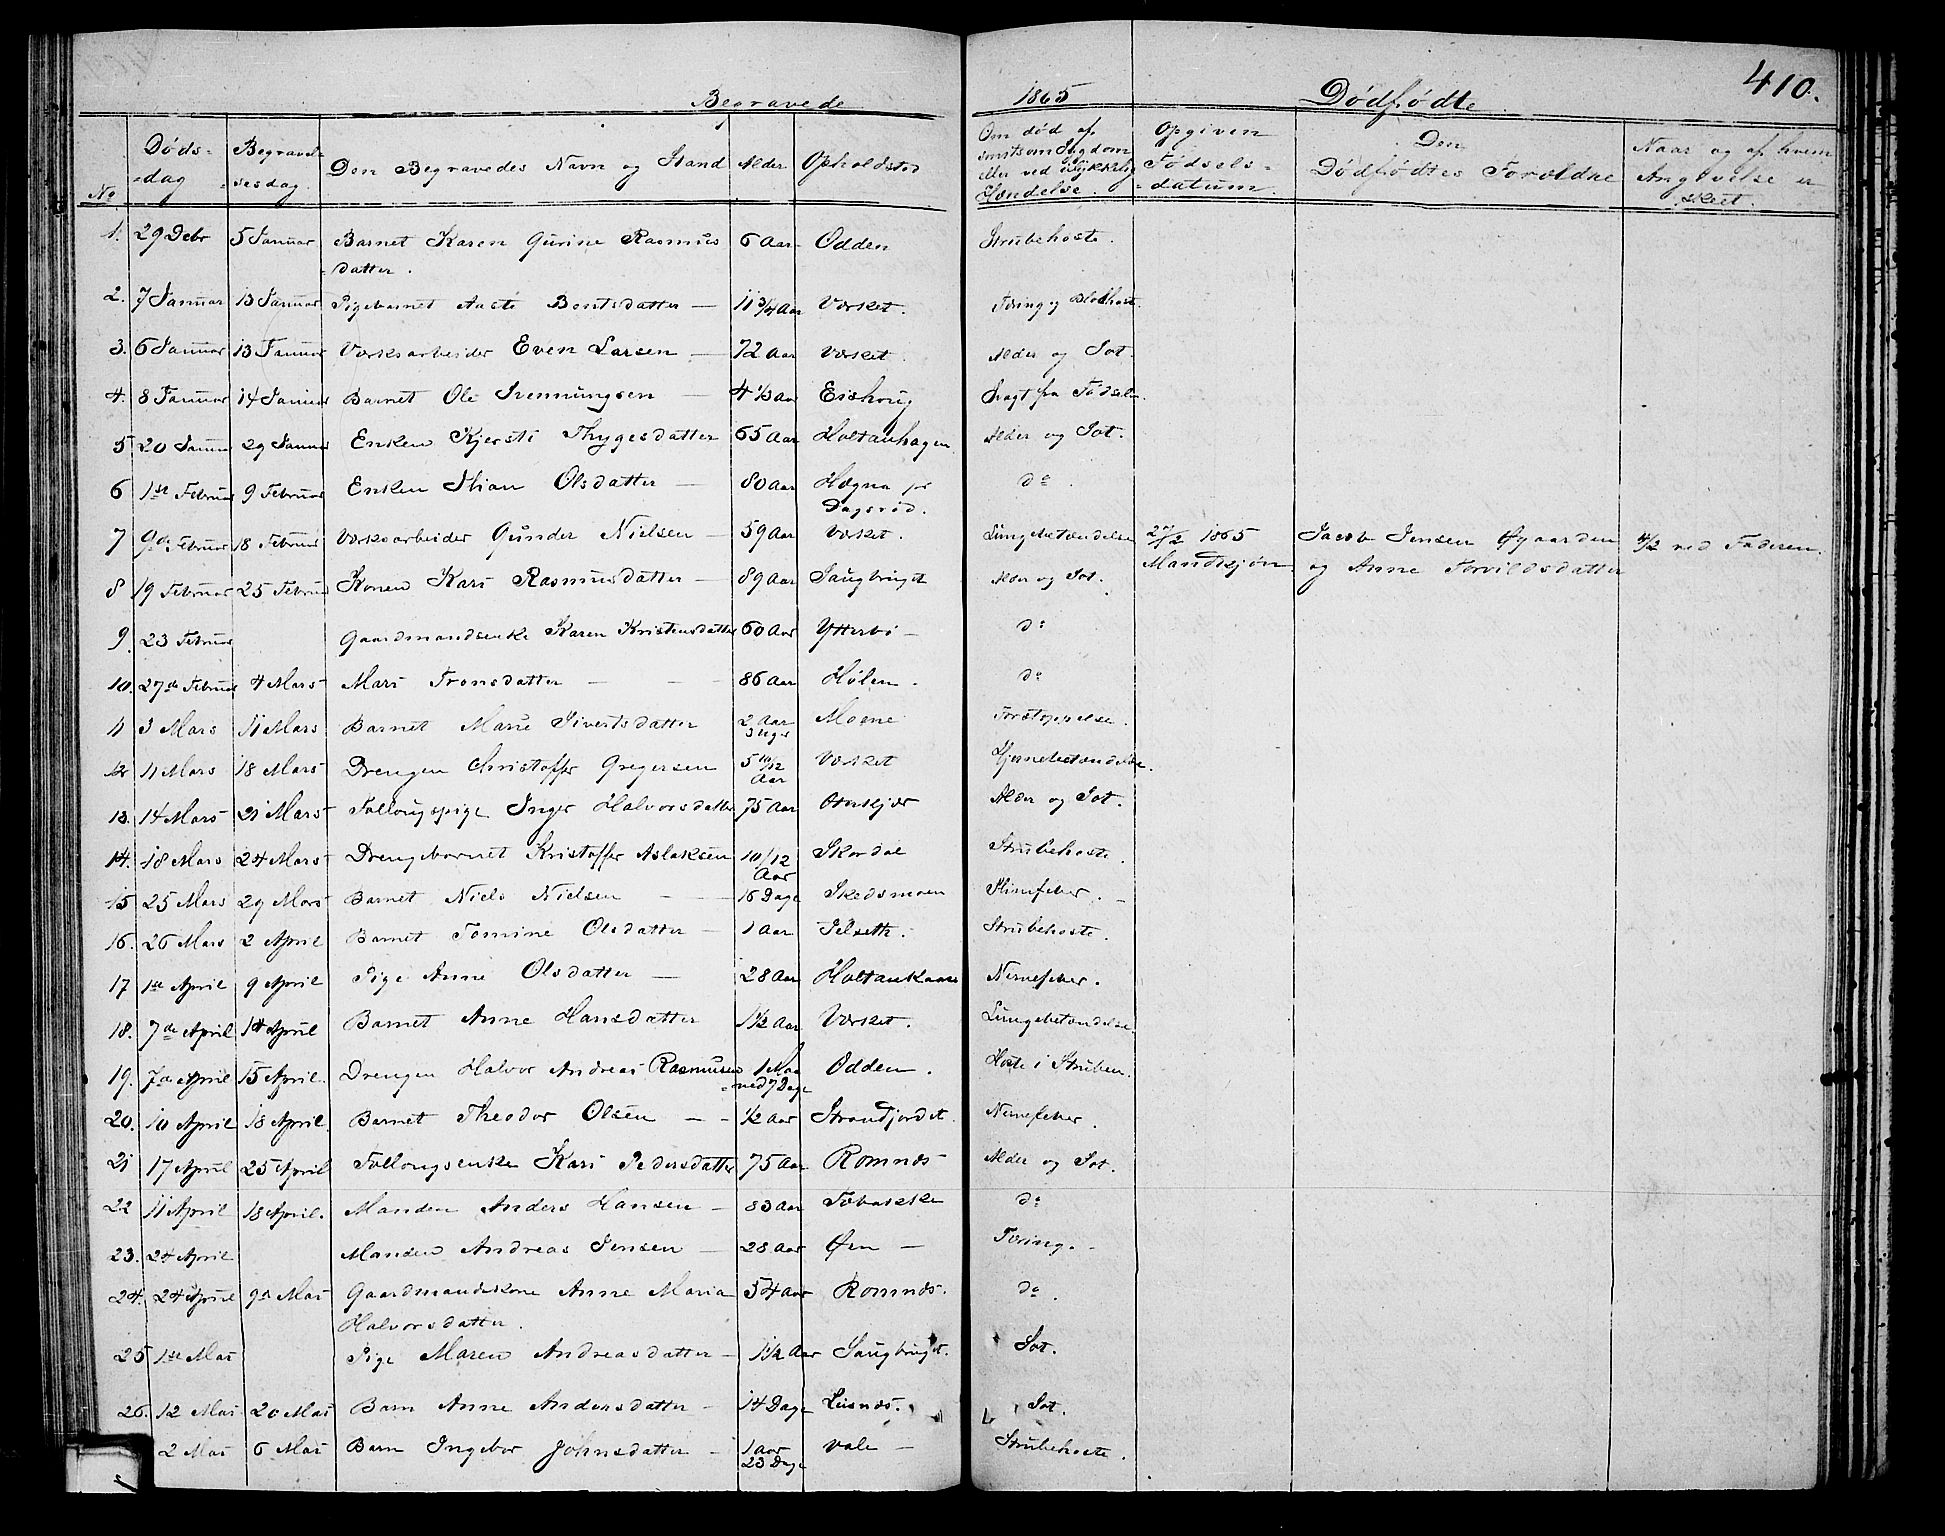 410.
Begravede 1865 Dødfødte
No Døds-dag Begravel-sesdag Den Begravedes Navn og Stand Alder Opholdsted Om død af smitsom Sygdom eller ved ulykkelig Hændelse. Opgiven Fødsels-datum. Den Dødfødtes Forældre Naar og af hvem Angivelse er skeet.
1. 29 Debr 5 Januar Barnet Karen Gurine Rasmus 6 Aar Odden Strubehoste.
datter.
2. 7 Januar 13 Januar Pigebarnet Aaste Bentsdatter — 11 3/4 Aar Værket. Tæring og Blodhoste.
3. 6 Januar 13 Januar Værksarbeider Even Larsen — 72 Aar Værket. Alder og Sot.
4. 8 Januar 14 Januar Barnet Ole Svennungsen — 4 1/3 Aar Eishoug Svagt fra Fødselen
5 20 Januar 29 Januar Enken Kjersti Thygesdatter 65 Aar Holtanhagen. Alder og Sot.
6 1ste Februar 9 Februar Enken Olsdatter — 80 Aar Hægna do.
Dagsrød.
7 9de Februar 18 Februar Værksarbeider Gunder Nielsen — 59 Aar Værket. Lungebetændelse 2/2 1865 Jacob Jensen Øgaarden 4/2 ved Faderen.
Mandkjøn og Anne Torvildsdatter
8 19 Februar 25 Februar Konen Kari Rasmusdatter — 89 Aar Saugbruget Alder og Sot.
9. 23 Februar Gaardmandsenke Karen Kristensdatter 60 Aar Ytterbø — do
10. 27de Februar 4 Mars Mari Tronsdatter — — 86 Aar Hølen. do
11 3 Mars 11 Mars Barnet Marie Sivertsdatter 2 Aar Moene Forstoppelse.
3 Uger
12 11 Mars 18 Mars Drengen Christoffer Gregersen 5 10/12 Værket Hjernebetændelse.
Aar
13. 14 Mars 21 Mars Fallougspige Inger Halvorsdatter 75 Aar Oterkjær Alder og Sot.
14. 18 Mars 24 Mars Drengebarnet Kristoffer Aslaksen 10/12 Skordal Strubehoste.
Aar
15 25 Mars 29 Mars Barnet Niels Nielsen — — 16 Dage Skedsmoen Slimfeber.
16. 26 Mars 2 April Barnet Tomine Olsdatter — 1 Aar Silseth. Strubehoste.
17 1ste April 9 April Pige Anne Olsdatter — 28 Aar Holtankaase Nervefeber.
18. 7de April 14 April Barnet Anne Hansdatter 1 1/2 Aar Værket. Lungebetændelse.
19. 7de April 15 April. Drengen Halvor Andreas Rasmusen 1 Maa Odden. Hoste i Struben.
ned 7 Dage
20. 10 April 18 April. Barnet Theodor Olsen — — 1/2 Aar Strandfjordet. Nervefeber.
21 17 April 25 April Fallougsenke Kari Pedersdatter 75 Aar Romnæs Alder og Sot.
22 11 April 18 April. Manden Anders Hansen — 83 Aar Tobakke do
23. 24 April Manden Andreas Jensen — 28 Aar Øen — Tæring.
24. 24 April 9de Mai Gaardmandskone Anne Maria 54 Aar Romnæs. do.
Halvorsdatter.
25 1ste Mai Pige Maren Andreasdatter — 1 1/2 Aar Saugbruget. Sot.
26. 12 Mai 20 Mai Barn Anne Andersdatter — 14 Dage Leisnæs. Sot.
2 Mai 6 Mai Barn Ingebor Johnsdatter — 1 Aar Vale — Strubehoste.
23 Dage